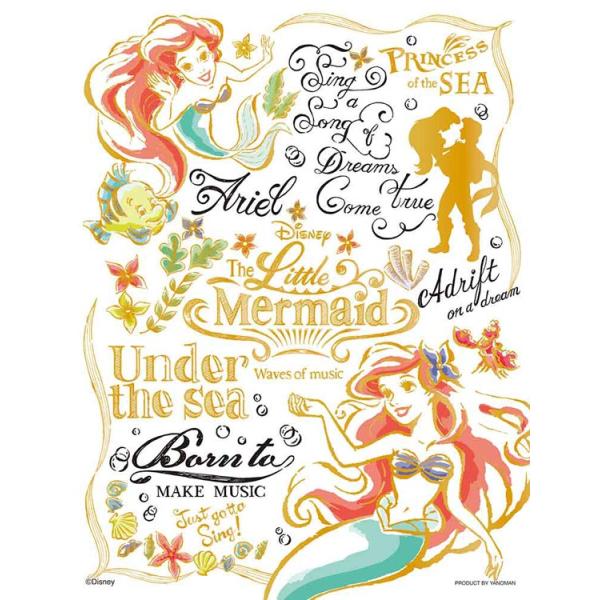 PRINCESS
of the SEA
Sing
a
Song of
Dreams
Come true
Ariel
Disney
The Little
Mermaid
Adrift
on a dream
Under
the sea
Waves of music
Born to
MAKE MUSIC
Just gotta
Sing!
©Disney
PRODUCT BY YANOMAN